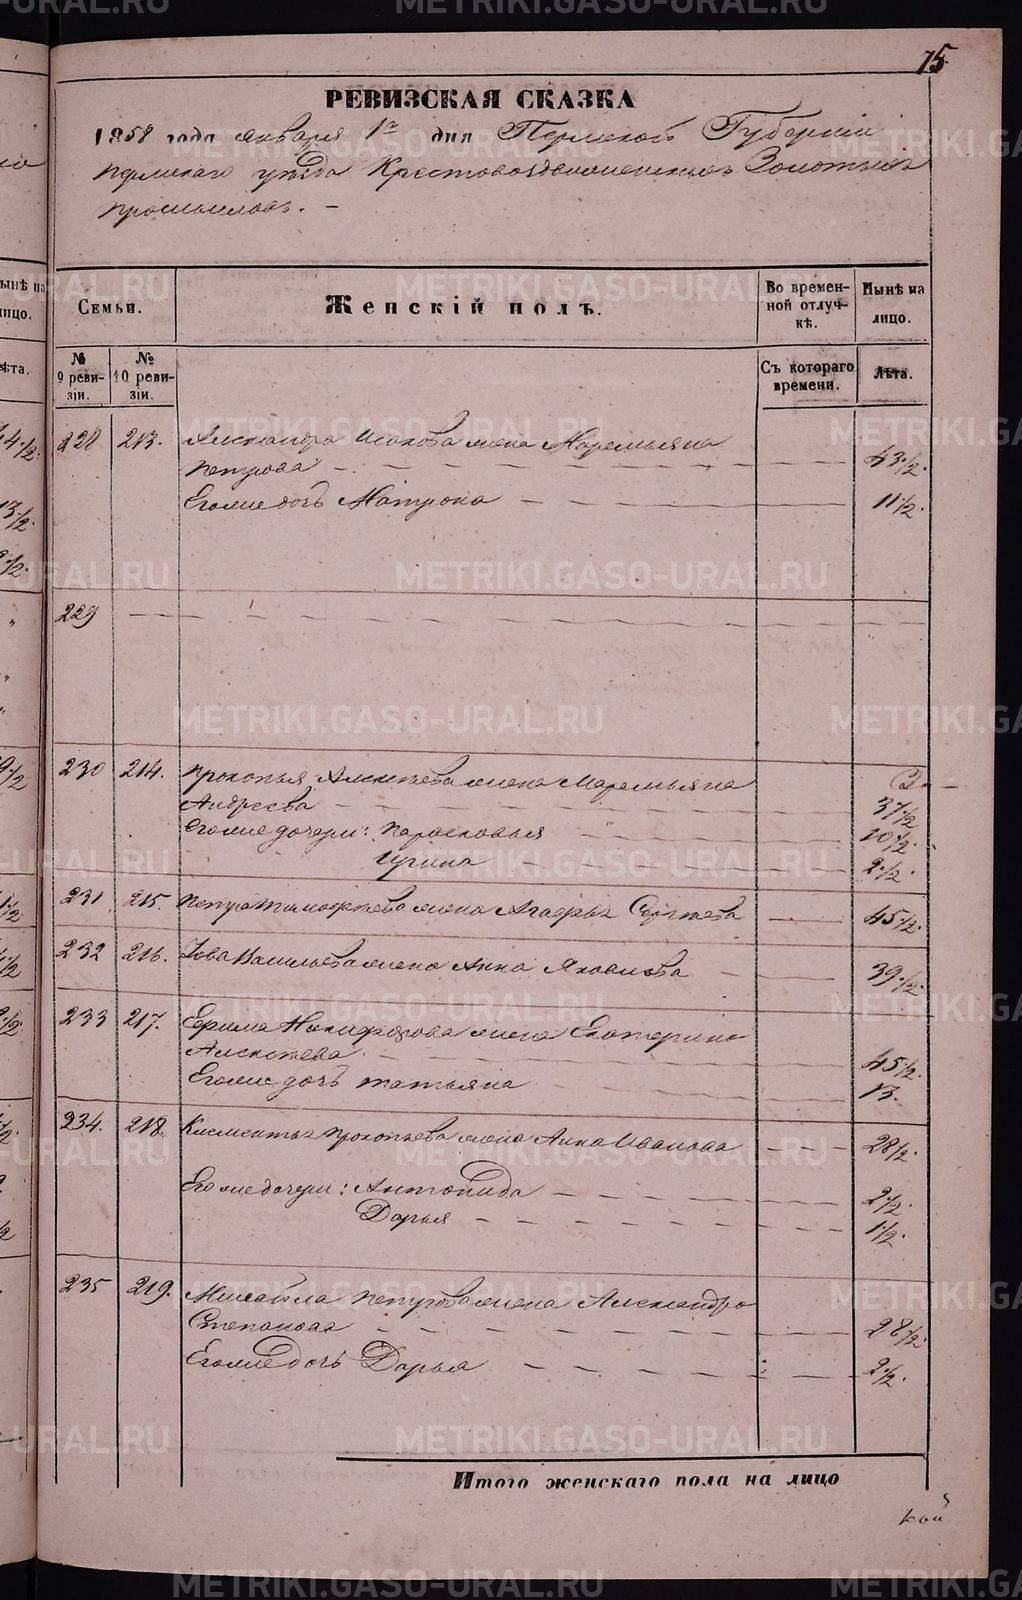 75
РЕВИЗСКАЯ СКАЗКА
1858 года января 1го дня Пермской Губернiи
Пермскаго уѣзда Крестовоздвиженскихъ Золотыхъ
промысловъ. –
Семьи.
Женскiй полъ.
Во времен-
ной отлуч-
кѣ.
Нынѣ на
лицо.
№
9 реви-
зiи.
№
10 реви-
зiи.
Съ котораго
времени.
Лѣта.
228 213. Александра Исакова жена Маремьяна
Петрова 43½.
Его же дочь Матрона 11½.
229
230 214. Прокопья Алексѣева жена Маремьяна
Андреева 37½
Его же дочери: Парасковья 10½.
Ирина 2½.
231 215. Петра Тимофѣева жена Агафья Сергѣева 45½.
232 216. Iова Васильева жена Анна Яковлева 39½.
233 217. Ефима Никифорова жена Екатерина
Алексѣева 45½.
Его же дочь Татьяна 13.
234. 218. Клементья Прокопьева жена Анна Иванова 28½.
Его же дочери: Антонида 2½.
Дарья 1½.
235 219. Михайла Петрова жена Александра
Степанова 28½.
Его же дочь Дарья 2½.
Итого женскаго пола на лицо